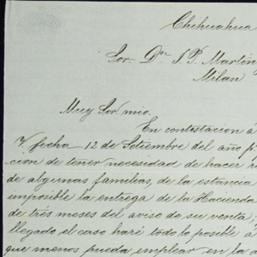 Chihuahua
Sor. Dn. J. P. Martin
Milan
Muy Sor mio.
En contestacion á
V. fecha 12 de Setiembre del año p
cion de tener necesidad de hacer
de algunas familias, de la estancia
imposible la entrega de la Hacienda
de tres meses del aviso de su venta;
llegado el caso haré todo lo posible á
que menos pueda emplear en la